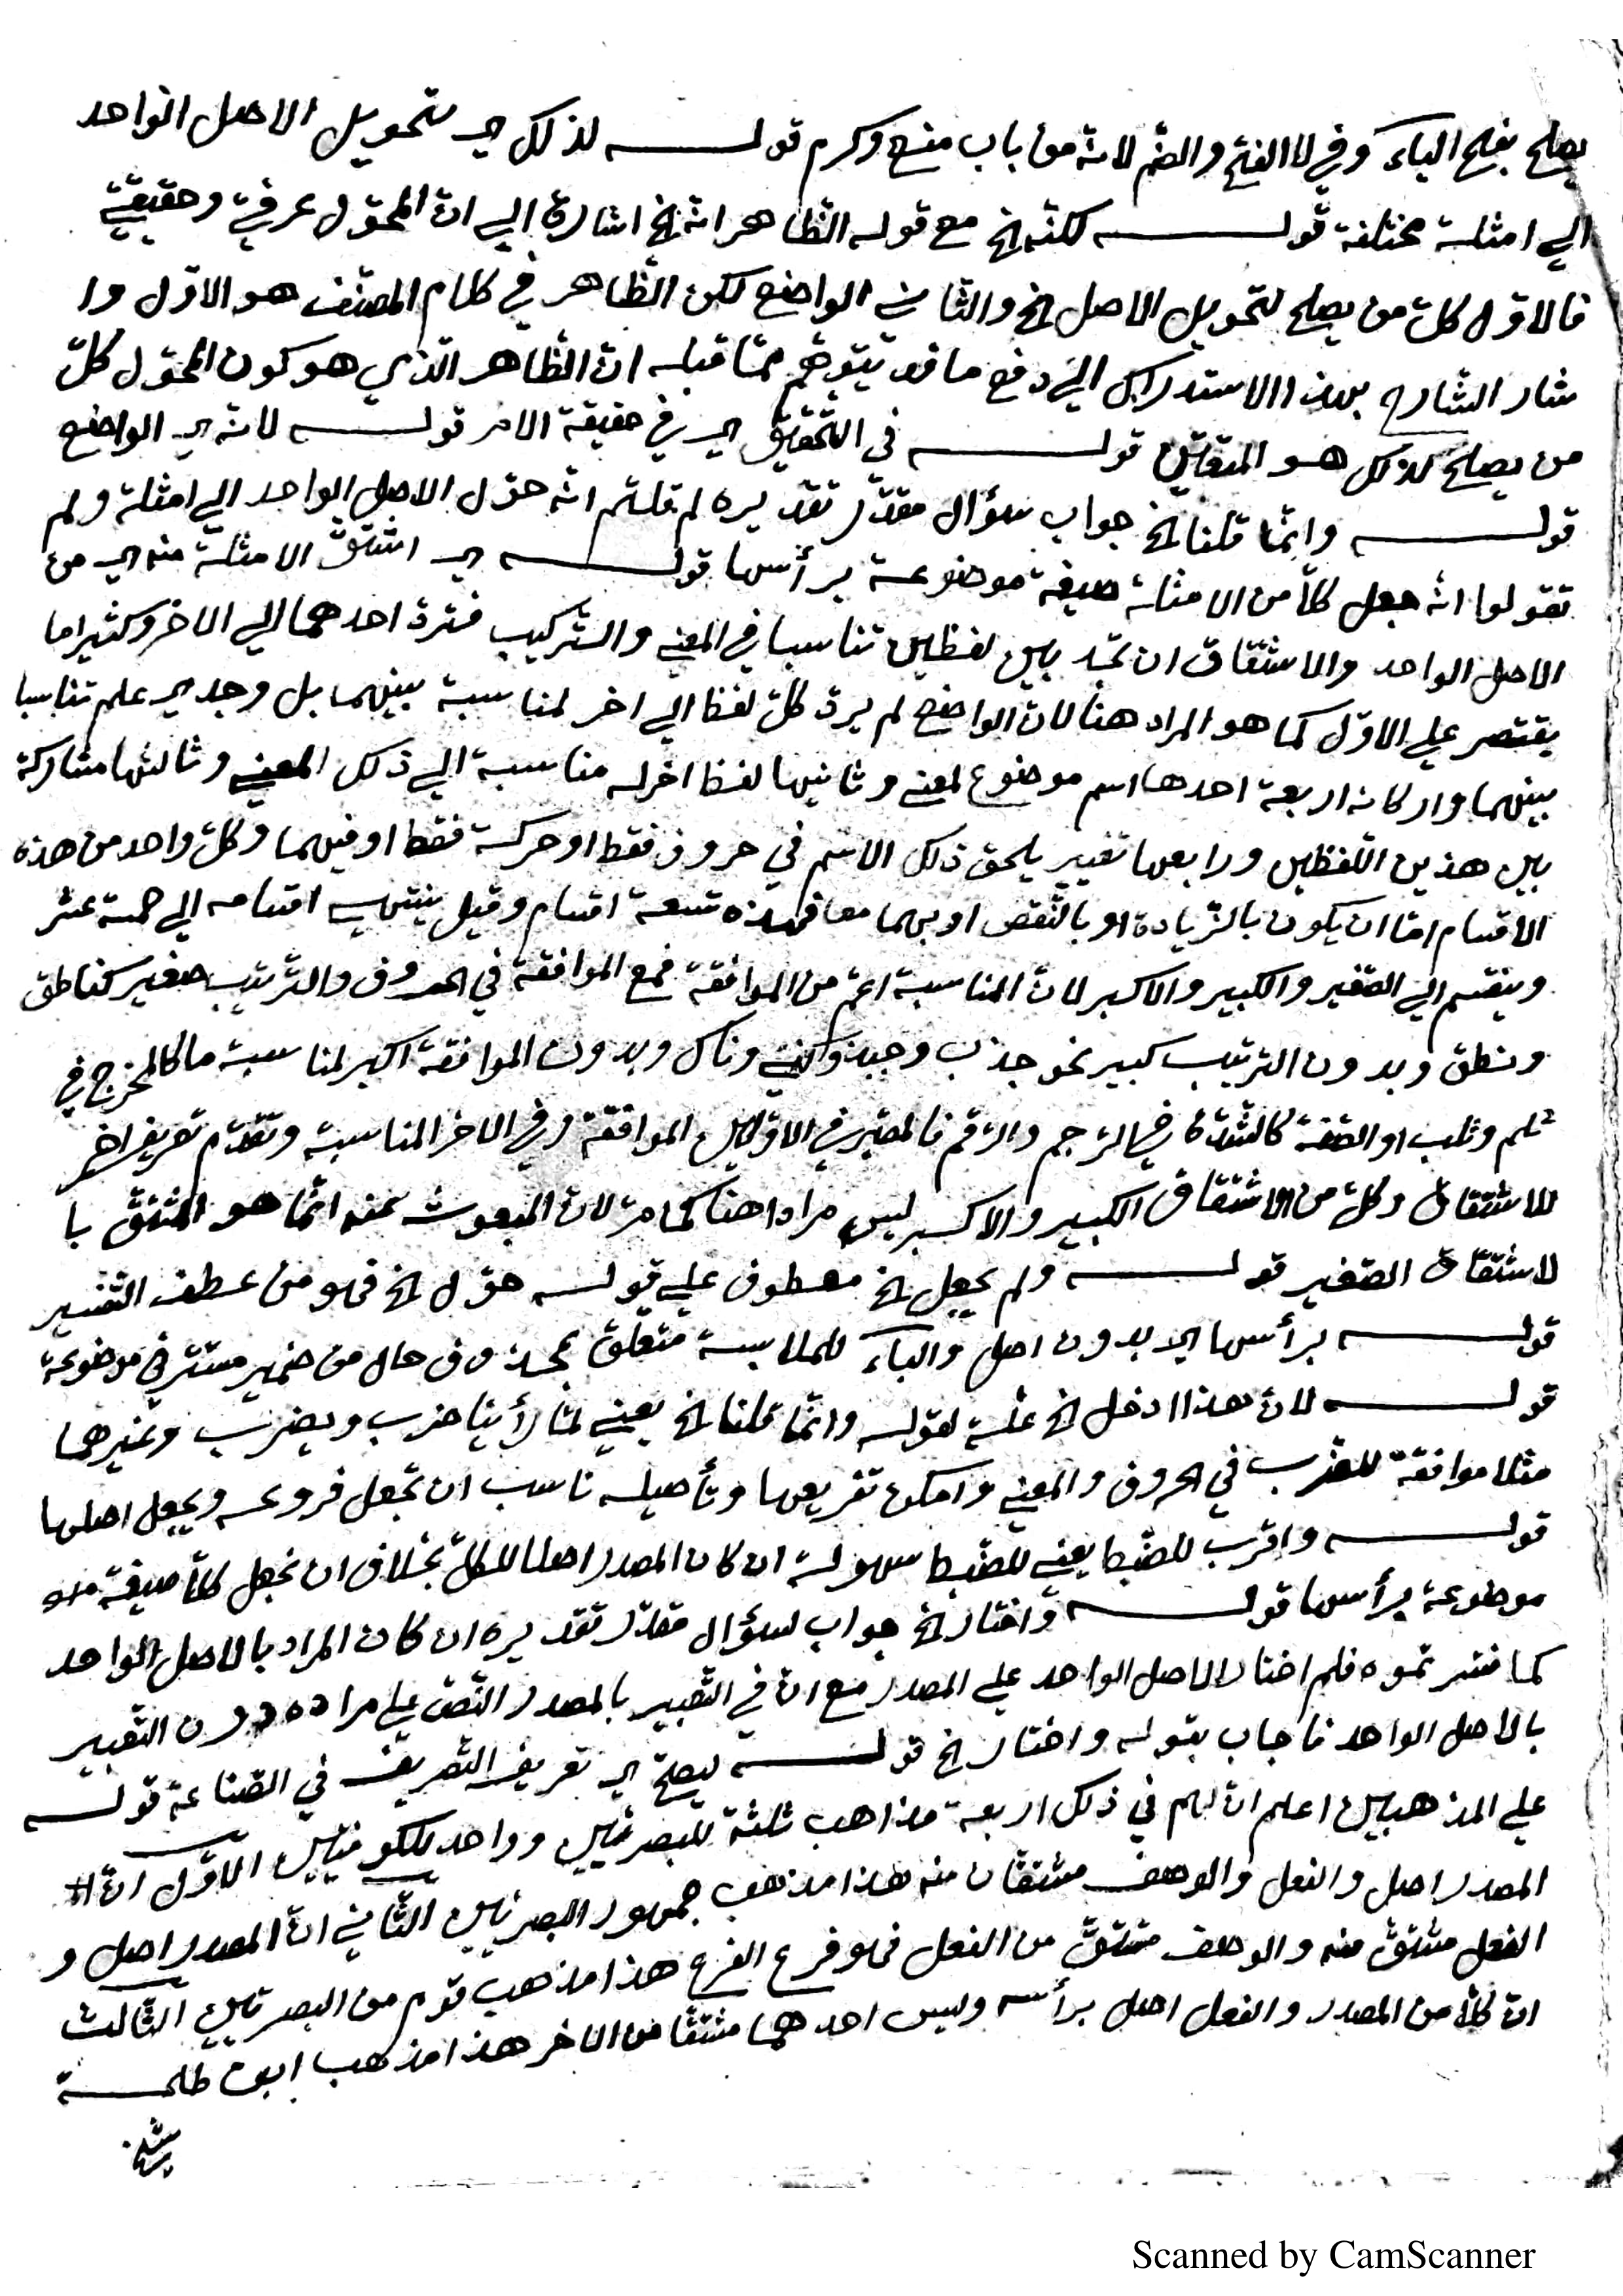 يصلح بفتح الياء وفي لا الفتح والضم لانه من باب منع وكرم قوله لذلك اي تحويل الاصل الواحد
الي امثلة مختلفة قوله لكنه الخ مع قوله الظاهر انه الخ اشارة الي ان المحوّل عرفي وحقيقي
فالاوّل كلّ من يصلح لتحويل الاصل الخ والثاني الواضع لكن الظاهر في كلام المصنّف هو الاوّل وا
شار الشارح بهذا الاستدراك الي دفع ما قد يتوهّم ممّا قبله انّ الظّاهر الّذي هو كون المحوّل كلّ
من يصلح لذلك هو المتعيّن قوله في التّحقيق اي في حقيقة الامر قوله لانّه اي الواضع
قوله وانّما قلنا الخ جواب سؤال مقدّر تقديره لم قلتم انّه حوّل الاصل الواحد الي امثلة ولم
تقولوا انّه جعل كلّا من الامثلة صيغة موضوعة برأسها قوله اي اشتقّ الامثلة منه اي من
الاصل الواحد والاشتقاق ان تجد بين لفظين تناسبا في المعني والتركيب فتردّ احدهما الي الاخر وكثيرا ما
يقتصر علي الاوّل كما هو المراد هنا لانّ الواضع لم يردّ كلّ لفظ الي اخر لمناسبة بينهما بل وجد اي علم تناسبا
بينهما واركانه اربعة احدها اسم موضوع لمعني وثانيها لفظ اخر له مناسبة الي ذلك المعني وثالثها مشاركة
بين هذين اللّفظين ورابعها تغيير يلحق ذلك الاسم في حروف فقط او حركة فقط او فيهما وكلّ واحد من هذه
الاقسام امّا ان يكون بالزّيادة او بالنّقص او بهما معا فهذه تسعة اقسام وقيل ينتهي اقسامه الي خمسة عشر
وينقسم الي الصّغير والكبير والاكبر لانّ المناسبة اعمّ من الموافقة فمع الموافقة في الحروف والترتيب صغير كناطق
ونطق وبدون الترتيب كبير نحو جذب وجبذ وكني وناك وبدون الموافقة اكبر لمناسبة ما كالمخرج في
ثلم وثلب او الصّفة كالشّدّة في الرّجم والرّقم فالمعتبر في الاوّلين الموافقة وفي الاخر المناسبة وتقدّم تعريف اخر
للاشتقاق وكلّ من الاشتقاق الكبير والاكبر ليس مرادا هنا كما مرّ لانّ المبعوث عنه انّما هو المشتقّ با
لاشتقاق الصّغير قوله ولم يجعل الخ معطوف علي قوله حوّل الخ فهو من عطف التّفسير
قوله برأسها اي بدون اصل والباء للملابسة متعلّق بمحذوف حال من ضمير مستتر في موضوعة
قوله لانّ هذا ادخل الخ علّة لقوله وانّما قلنا الخ يعني لمّا رأينا ضرب ويضرب وغيرهما
مثلا موافقة للضّرب في الحروف والمعني وامكن تفريعها وتأصيله ناسب ان تجعل فروعه ويجعل اصلها
قوله واقرب للضّبط يعني للضّبط سهولة ان كان المصدر اصلا للكلّ بخلاف ان نجعل كلّا صيغة
موضوعة برأسها قوله واختار الخ جواب سؤال مقدّر تقديره ان كان المراد بالاصل الواحد
كما فسّرتموه فلم اختار الاصل الواحد علي المصدر مع انّ في التّعبير بالمصدر النّصّ علي مراده دون التّعبير
بالاصل الواحد فاجاب بقوله واختار الخ قوله ليصحّ اي تعريف التّصريف في الصّناعة قوله
علي المذهبين اعلم انّ لهم في ذلك اربعة مذاهب ثلثة للبصريّين وواحد للكوفيّين الاوّل انّ
المصدر اصل والفعل والوصف مشتقّان منه هذا مذهب جمهور البصريّين الثّاني انّ المصدر اصل و
الفعل مشتقّ منه والوصف مشتقّ من الفعل فهو فرع الفرع هذا مذهب قوم من البصريّين الثّالث
انّ كلّا من المصدر والفعل اصل برأسه وليس احدهما مشتقّا من الاخر هذا مذهب ابن طلحة
Scanned by CamScanner